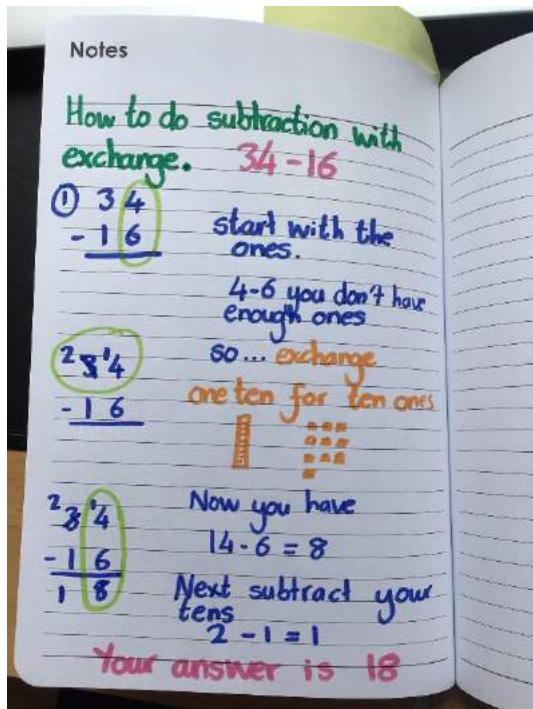 Notes
How to do subtraction with
exchange. 34-16
① 3 4
- 1 6
start with the
ones.
4-6 you don't have
enough ones
2 3 14
- 1 6
so... exchange
one ten for ten ones
2 3 14
- 1 6
1 8
Now you have
14-6 = 8
Next subtract your
tens
2 - 1 = 1
Your answer is 18